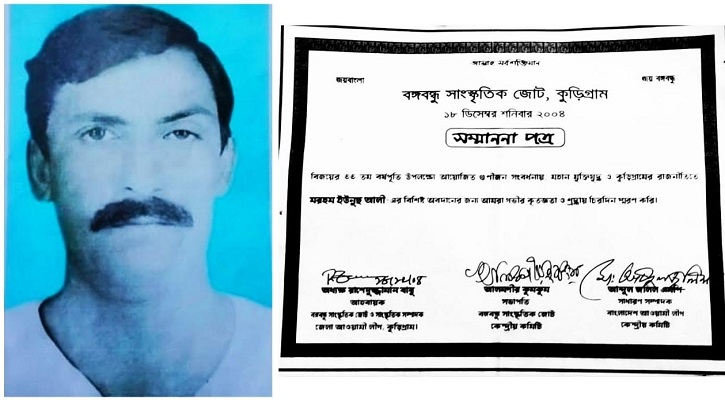 আল্লাহ সর্বশক্তিমান
জয়বাংলা
জয় বঙ্গবন্ধু
বঙ্গবন্ধু সাংস্কৃতিক জোট, কুড়িগ্রাম
১৮ ডিসেম্বর শনিবার ২০০৪
সম্মাননা পত্র
বিজয়ের ৩৩ তম বর্ষপূর্তি উপলক্ষ্যে আয়োজিত গুণীজন সংবর্ধনায় মহান মুক্তিযুদ্ধ ও কুড়িগ্রামের রাজনীতিতে
মরহুম ইউনুছ আলী -এর বিশিষ্ট অবদানের জন্য আমরা গভীর কৃতজ্ঞতা ও শ্রদ্ধায় চিরদিন স্মরণ করি।
অধ্যক্ষ রাশেদুজ্জামান বাবু
আহবায়ক
বঙ্গবন্ধু সাংস্কৃতিক জোট ও সাংস্কৃতিক সম্পাদক
জেলা আওয়ামী লীগ, কুড়িগ্রাম।
আলমগীর কুমকুম
সভাপতি
বঙ্গবন্ধু সাংস্কৃতিক জোট
কেন্দ্রীয় কমিটি
আব্দুল জলিল এমপি
সাধারণ সম্পাদক
বাংলাদেশ আওয়ামী লীগ
কেন্দ্রীয় কমিটি